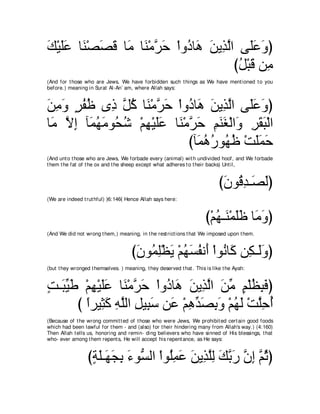 (وَعَلَى الَّذِينَ هَادُواْ حَرَّمْنَا مَا قَصَصْنَا عَلَيْكَ
مِن قَبْلُ)
(And for those who are Jews, We have forbidden such things as We have mentioned to you
before.) meaning in Surat Al-An`am, where Allah says:
(وَعَلَى الَّذِينَ هَادُواْ حَرَّمْنَا كُلَّ ذِي ظُفُرٍ وَمِنَ
الْبَقَرِ وَالْغَنَمِ حَرَّمْنَا عَلَيْهِمْ شُحُومَهُمَآ إِلاَّ مَا
حَمَلَتْ ظُهُورُهُمَآ)
(And unto those who are Jews, We forbade every (animal) with undivided hoof, and We forbade
them the fat of the ox and the sheep except what adheres to their backs) Until,
(لَصَـدِقُونَ)
(We are indeed truthful) )6:146( Hence Allah says here:
(وَمَا ظَلَمْنَـهُمْ)
(And We did not wrong them,) meaning, in the restrictions that We imposed upon them.
(وَلَـكِن كَانُواْ أَنفُسَهُمْ يَظْلِمُونَ)
(but they wronged themselves. ) meaning, they deserved that. This is like the Ayah:
(فَبِظُلْمٍ مِّنَ الَّذِينَ هَادُواْ حَرَّمْنَا عَلَيْهِمْ طَيِّبَـتٍ
أُحِلَّتْ لَهُمْ وَبِصَدِّهِمْ عَن سَبِيلِ اللَّهِ كَثِيراً )
(Because of the wrong committed of those who were Jews, We prohibited certain good foods
which had been lawful for them - and (also) for their hindering many from Allah's way.) (4:160)
Then Allah tells us, honoring and remin- ding believers who have sinned of His blessings, that
who- ever among them repents, He will accept his repentance, as He says:
(ثُمَّ إِنَّ رَبَّكَ لِلَّذِينَ عَمِلُواْ السُّوءَ بِجَهَـلَةٍ)